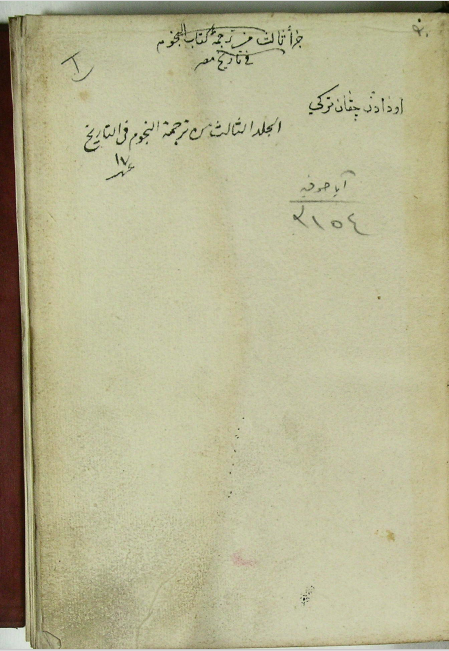 جزء ثالث من ترجمة كتاب النجوم
في تاريخ مصر
اودادن چقان تركي
الجلد الثالث من ترجمة النجوم في التاريخ
١٧
آيا صوفيه
٣١٥٤